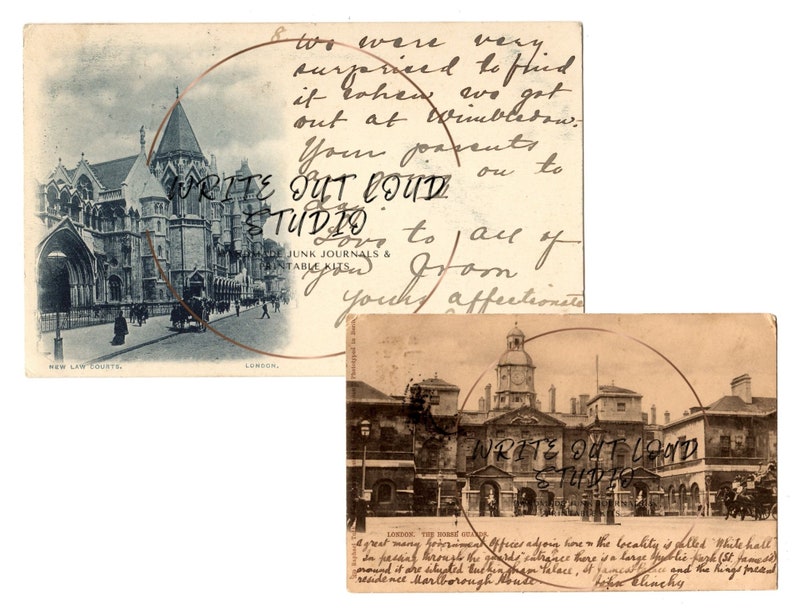 8
We were very
surprised to find
it when we got
out at Wimbledon.
Your parents
on to
Love to all of
you from
yours affectionate
WRITE OUT LOUD
STUDIO
HANDMADE JUNK JOURNALS &
PRINTABLE KITS
NEW LAW COURTS. LONDON.
Phototyped in Berlin
Raphael
WRITE OUT LOUD
STUDIO
LONDON. THE HORSE GUARDS.
A great many Government Offices adjoin here & the locality is called "Whitehall"
In passing through the guards' entrance there is a large public park (St James's)
around it are situated Buckingham Palace, St James Palace and the Kings present
residence Marlborough House. John Clinchy